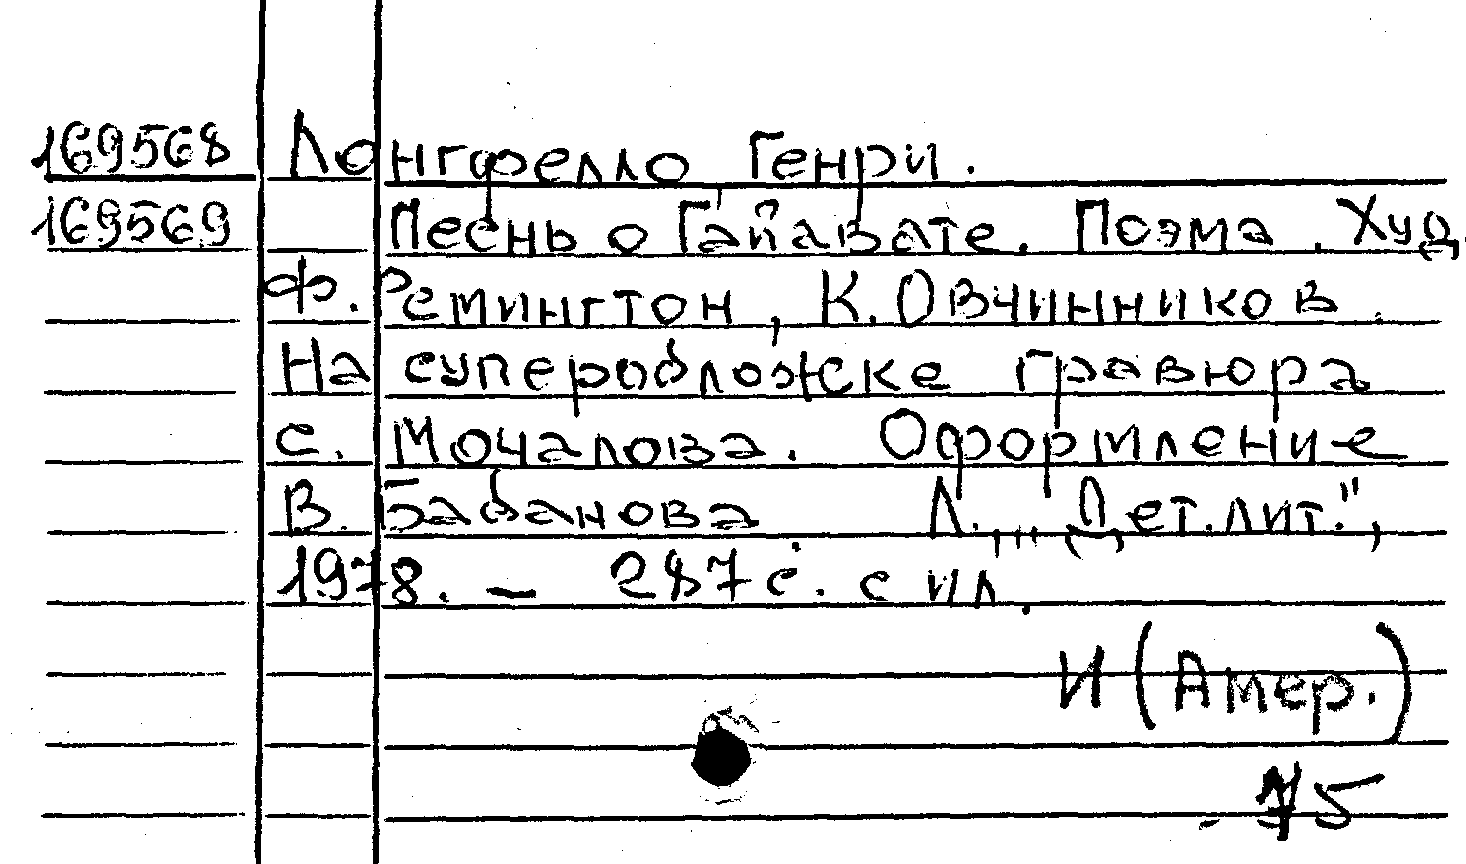 169568 Лонгфелло Генри.
169569 Песнь о Гайавате. Поэма. Худ.
Ф. Ремингтон, К. Овчинников.
На суперобложке гравюра
С. Мочалова. Оформление
В. Бабанова Л., "Дет. лит.",
1978. – 287 с. с ил.
И (Амер.)